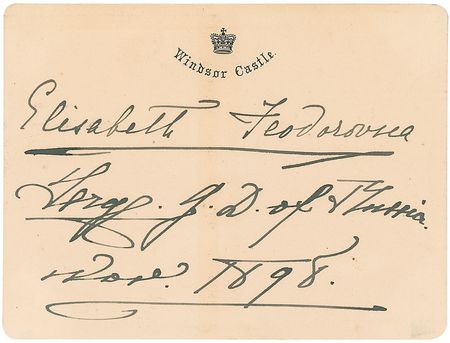 Windsor Castle.
Elisabeth Feodorovna
Serge. G. D. of Russia.
Nov. 1898.